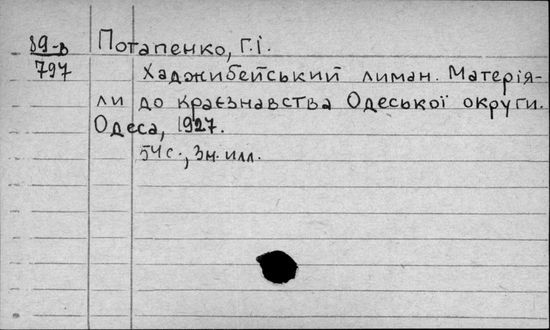 89-в Потапенко, Г.і.
797 Хаджибейський лиман. Матерія-
ли до краєзнавства Одеської округи.
Одеса, 1927.
54с., 3н. илл.